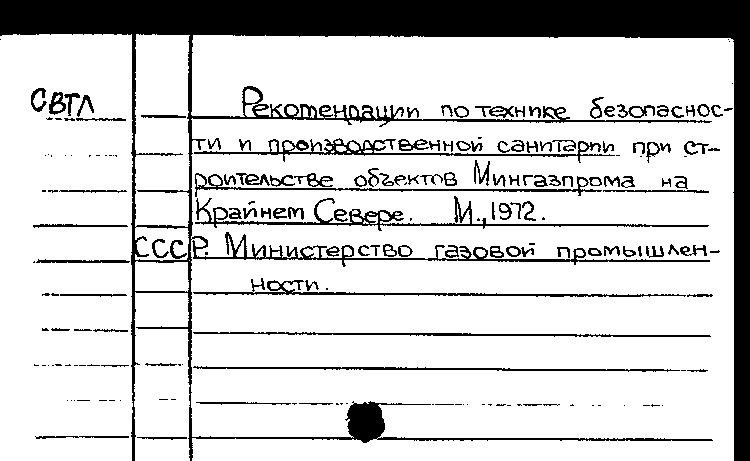 СВТЛ Рекомендации по технике безопаснос-
ти и производственной санитарии при ст-
роительстве объектов Мингазпрома на
Крайнем Севере. М., 1972.
СССР. Министерство газовой промышлен-
ности.